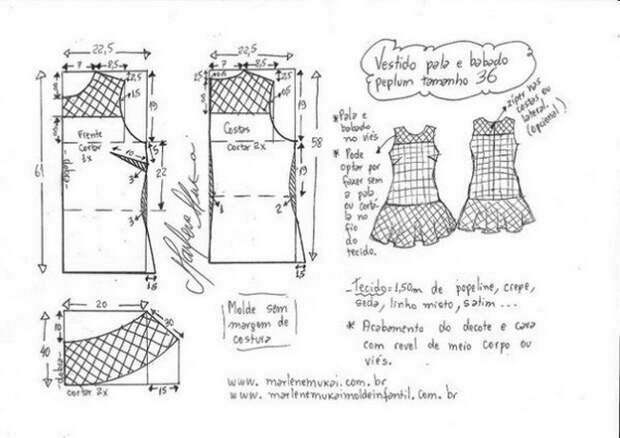 22,5
7
8,5
2,5
1,5
19
Frente
Cortar
1x
61
-dobra-
10
3
5
22
3
1,5
22,5
7
8,5
2,5
19
Costas
Cortar 2x
58
19
1
2
1,5
Marlene Mukai
Vestido pala e babado
peplum tamanho 36
* Pala e
babado
no viés
* Pode
optar por
fazer sem
a pala
ou cortá-
la no
fio
do
tecido.
zíper nas
costas ou
lateral.
(opcional)
20
40
10
30
-dobra-
cortar 2x
15
Molde sem
margem de
costura
- Tecido = 1,50m de popeline, crepe,
seda, linho misto, satim ...
* Acabamento do decote e cava
com revel de meio corpo ou
viés.
www. marlenemukai.com.br
www. marlenemukaimoldeinfantil.com.br